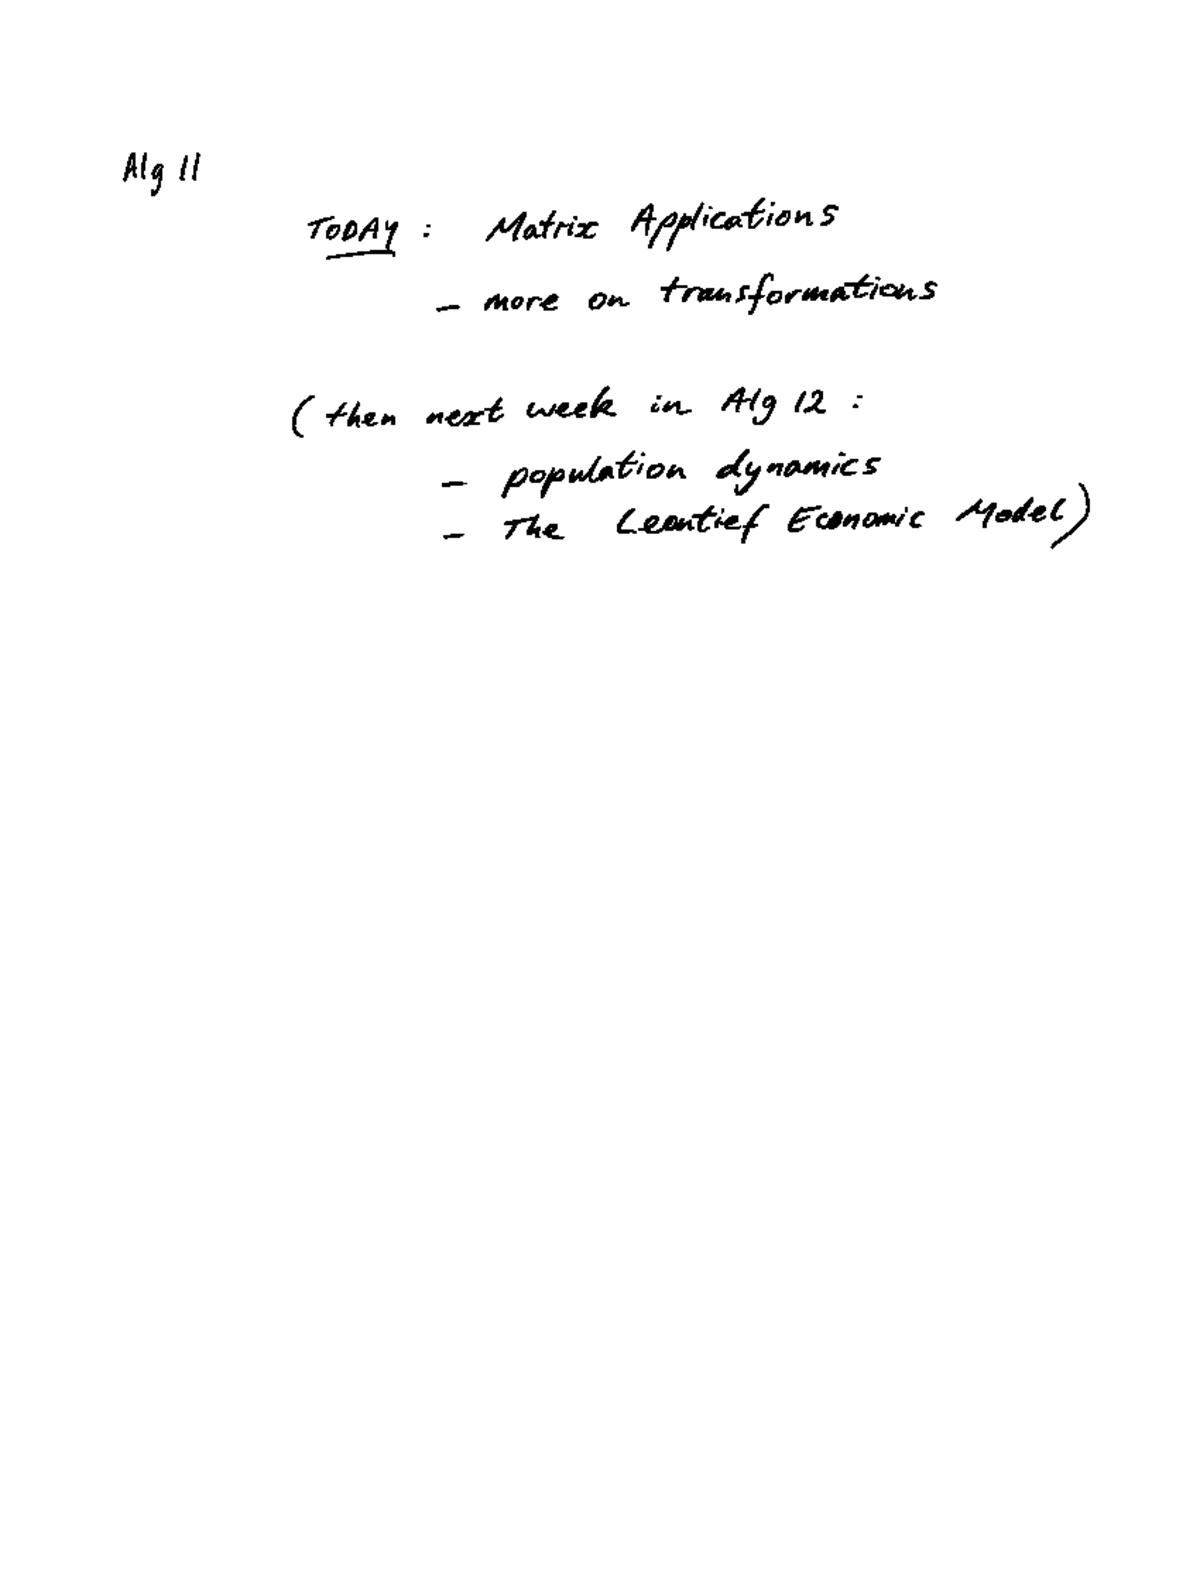 Alg 11
TODAY : Matrix Applications
- more on transformations
( then next week in Alg 12 :
- population dynamics
- The Leontief Economic Model)